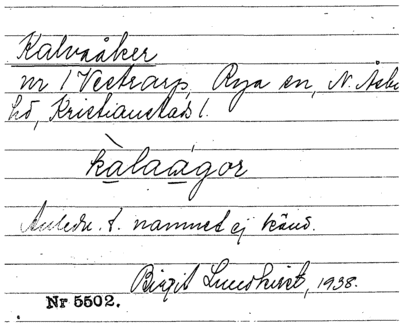 Kalvaåker
nr 1 Vestrarp, Rya sn, N. Åsbo
hd, Kristianstads l.
kàlaágor
Anledn. t. namnet ej känd.
Birgit Lundkvist, 1938.
Nr 5502.